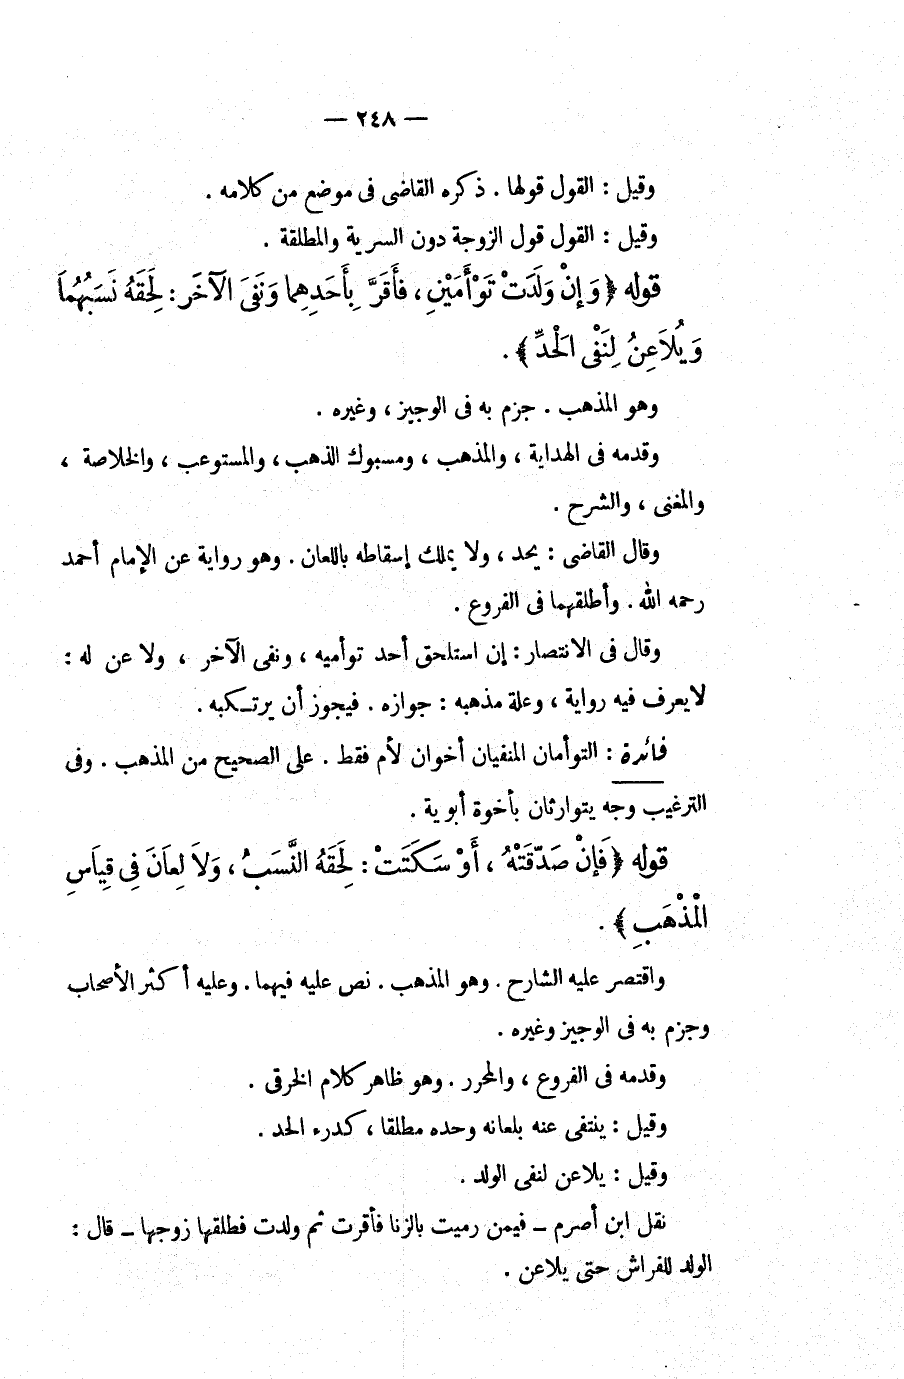 — ٢٤٨ —
وقيل : القول قولها . ذكره القاضى فى موضع من كلامه .
وقيل : القول قول الزوجة دون السرية والمطلقة .
قوله ﴿ وَإِنْ وَلَدَتْ تَوْأَمَيْنِ ، فأَقَرَّ بِأَحَدِهِما وَنَفَى الآخَر : لَحَقَهُ نَسَبُهُمَا
وَيُلاَعِنُ لِنَفْىِ الْحَدِّ ﴾ .
وهو المذهب . جزم به فى الوجيز ، وغيره .
وقدمه فى الهداية ، والمذهب ، ومسبوك الذهب ، والمستوعب ، والخلاصة ،
والمغنى ، والشرح .
وقال القاضى : يحد ، ولا يملك إسقاطه باللعان . وهو رواية عن الإمام أحمد
رحمه الله . وأطلقهما فى الفروع .
وقال فى الانتصار : إن استلحق أحد توأميه ، ونفى الآخر ، ولا عن له :
لايعرف فيه رواية ، وعلة مذهبه : جوازه . فيجوز أن يرتكبه .
فائدة : التوأمان المنفيان أخوان لأم فقط . على الصحيح من المذهب . وفى
الترغيب وجه يتوارثان بأخوة أبوية .
قوله ﴿ فَإِنْ صَدّقَتْهُ ، أَوْ سَكَتَتْ : لَحَقَهُ النَّسَبُ ، وَلاَ لِعاَنَ فِى قِيَاسِ
الْمَذْهَبِ ﴾ .
واقتصر عليه الشارح . وهو المذهب . نص عليه فيهما . وعليه أكثر الأصحاب
وجزم به فى الوجيز وغيره .
وقدمه فى الفروع ، والمحرر . وهو ظاهر كلام الخرقى .
وقيل : ينتفى عنه بلعانه وحده مطلقا ، كدرء الحد .
وقيل : يلاعن لنفى الولد .
نقل ابن أصرم – فيمن رميت بالزنا فأقرت ثم ولدت فطلقها زوجها – قال :
الولد للفراش حتى يلاعن .